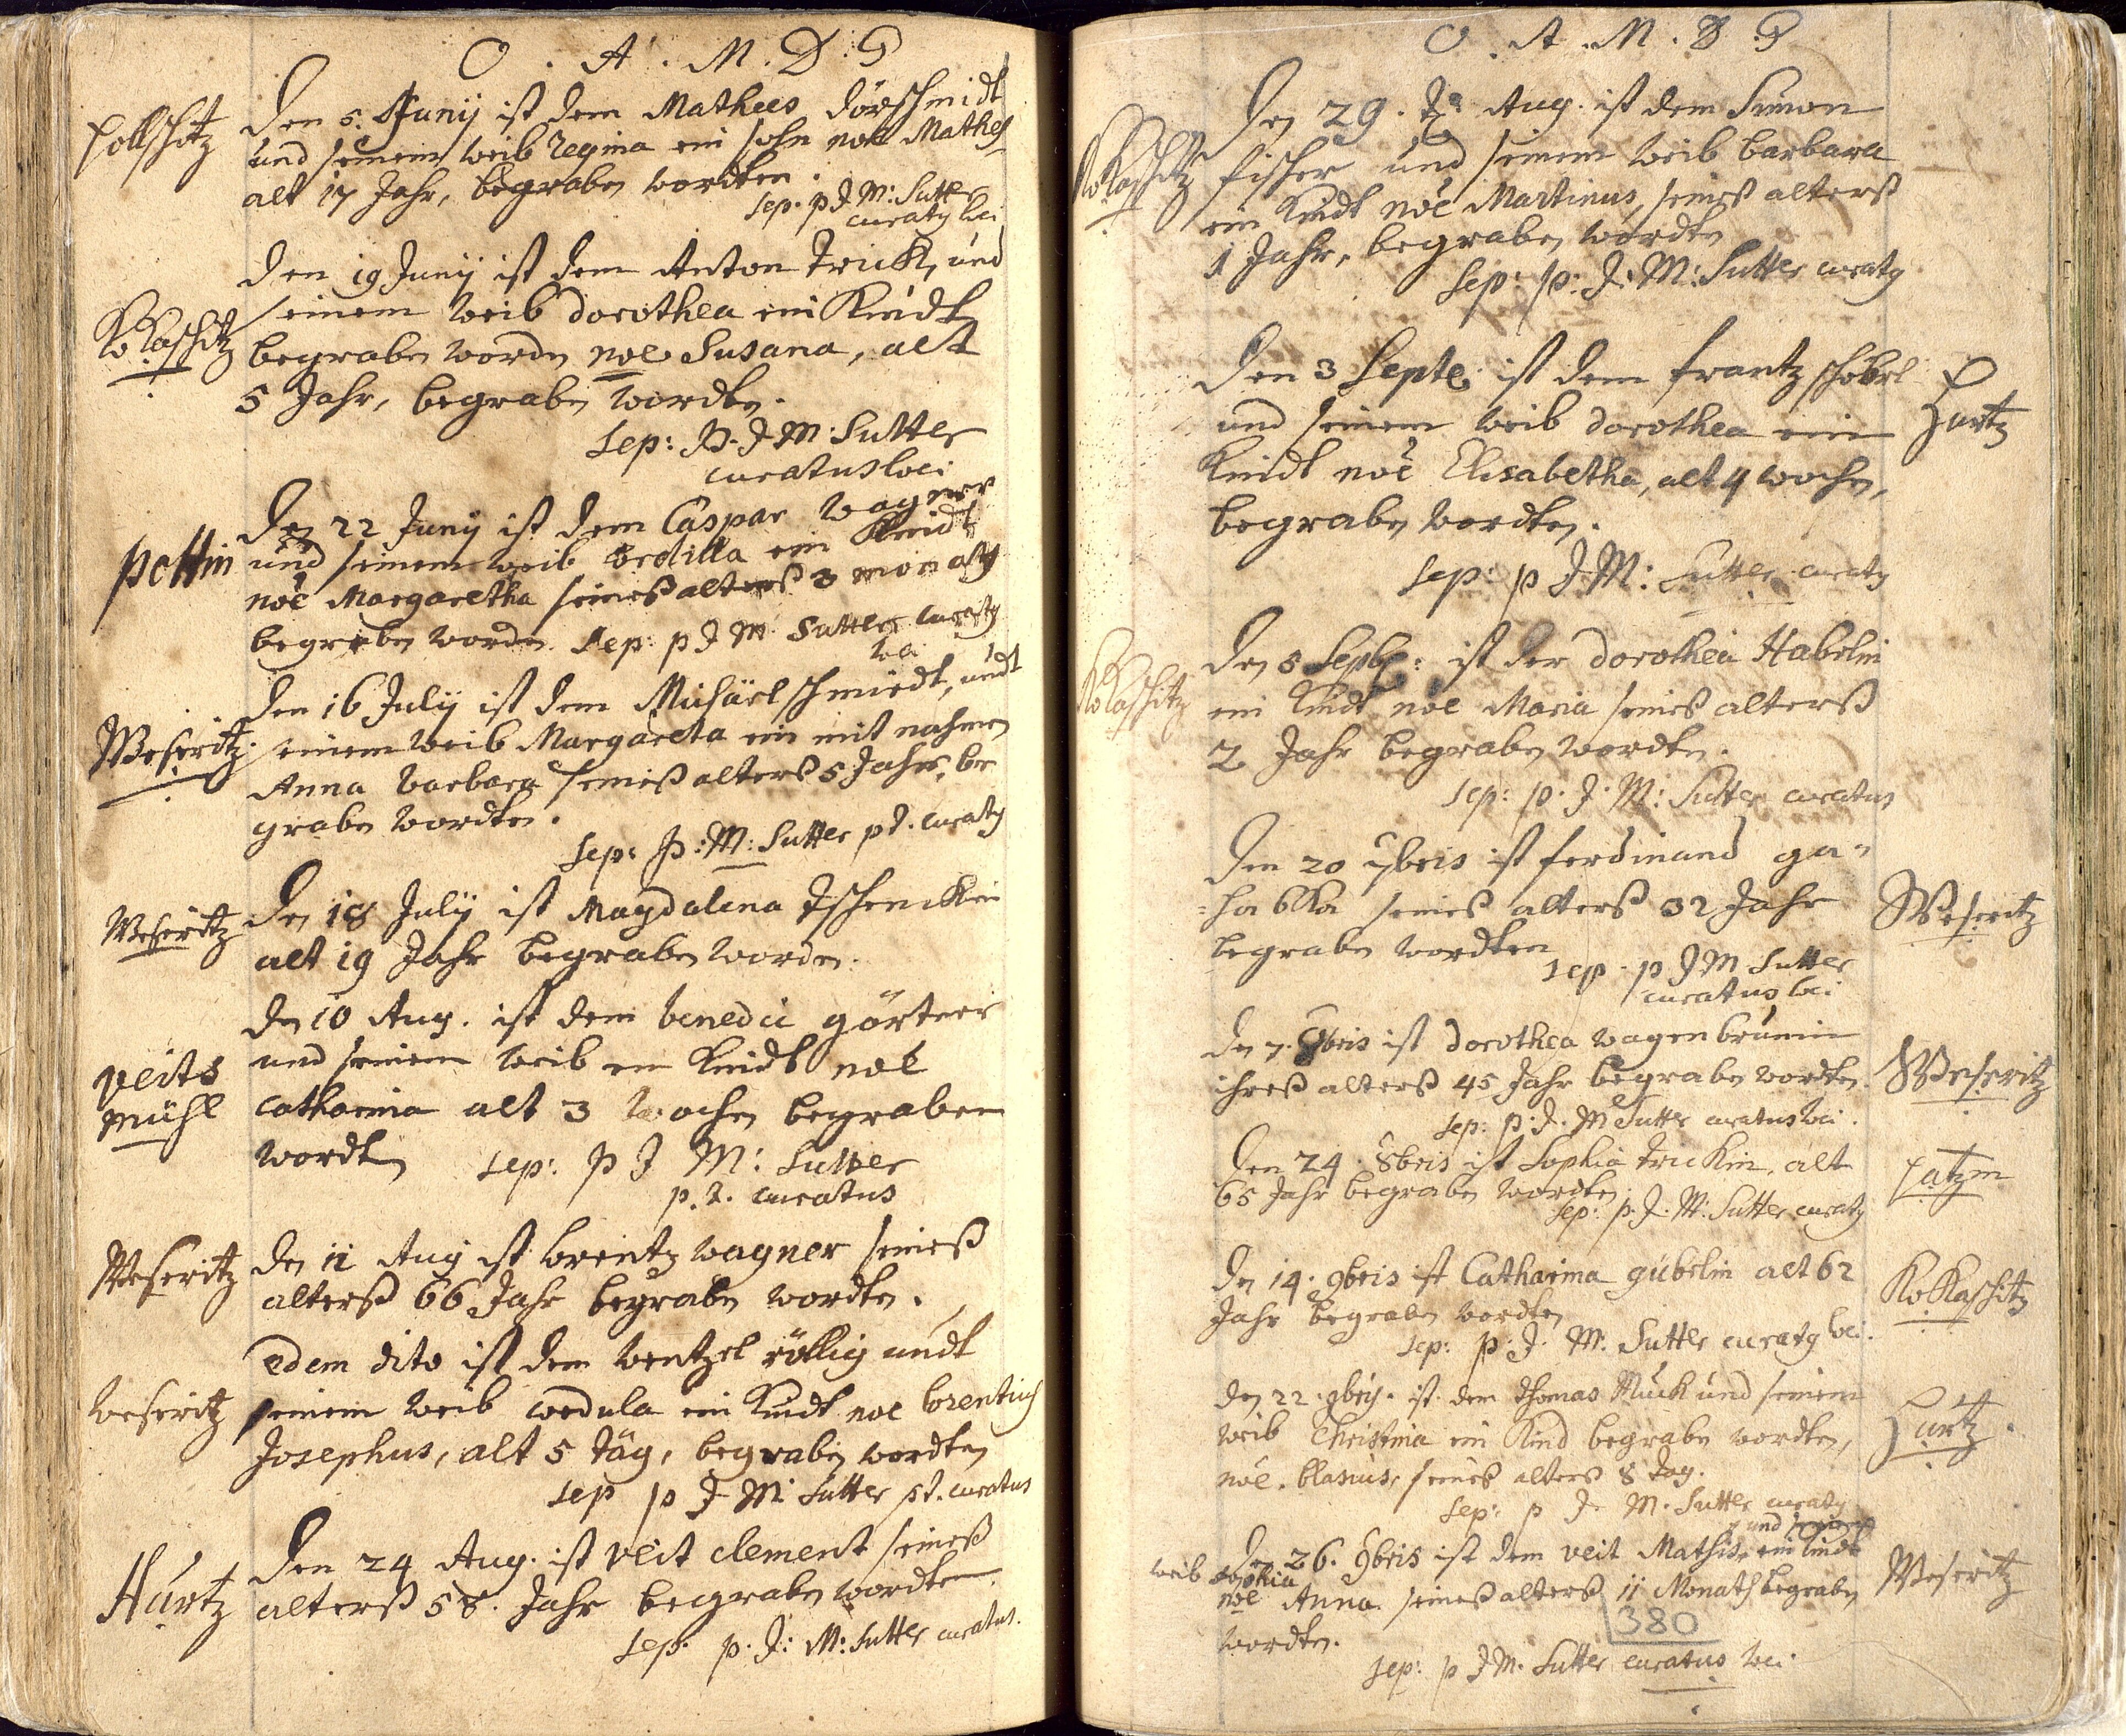 O. A. M. D. G
Pollschitz
Den 5. Junij ist dem Mathees dörschmidt
und seinem weib Regina ein sohn noe Mathes
alt 17 Jahr, begraben wordten.
Sep. p J M: Sutter
curatg loci
KoKaschitz
Den 19 Junij ist dem Anton Trick, und
seinem weib dorothea ein Kindt
begraben worden noe Susana, alt
5 Jahr, begraben wordten.
Sep: P. J M: Sutter
curatus loci
pottin
Den 22 Junij ist dem Caspar wagner
und seinem weib ein Kindt
noe Margaretha seines alters 3 monatg
begraben worden Sep: p J M Sutter curatg
loci
Weseritz
Den 16 Julij ist dem Michäel schmiedt, undt
seinem weib Margareta ein mit nahmen
Anna barbara seineß alterß 5 Jahr, be
graben wordten.
Sep: P: M: Sutter p t. curatg
Weseritz
Den 18 Julij ist Magdalena Tschencken
alt 19 Jahr begraben worden.
veits
mühl
Den 10 Aug. ist dem benedic görtner
und seinem weib ein Kindt noe
Catharina alt 3 wochen begraben
wordten Sep: P J M: Sutter
p. t. curatus
Weseritz
Den 11 Aug ist lorentz wagner seineß
alterß 66 Jahr begraben wordten.
edem dito ist dem wentzel röllig undt
weseritz
seinem weib cordula ein Kindt noe lorentius
Josephus, alt 5 täg, begraben wordten
Sep p J M Sutter pt. curatus
Hurtz
Den 24 Aug. ist veit clement seineß
alterß 58. Jahr begraben wordten
Sep: p. J: M: Sutter curatus.
O. A. M. D. G
KoKaschitz
Den 29. Aug. ist dem Simon
fischer und seinem weib barbara
ein Kindt noe Martinus, seineß alterß
1 Jahr, begraben wordten
Sep: p: J: M: Sutter curatg
Hurtz
Den 3 Septe: ist dem frantz schöbel
und seinem weib dorothea ein
Kindt noe Elisabetha, alt 4 wochen,
begraben wordten.
Sep: p J M: Sutter curatg
KoKaschitz
Den 5 Septe: ist der dorothea Habelin
ein Kindt noe Maria seines alterß
2 Jahr begraben wordten.
Sep: p. J. M: Sutter curatus
Weseritz
Den 20 7bris ist ferdinand ga=
=habka seineß alterß 32 Jahr
begraben wordten
Sep. p J M Sutter
curatus loci
Weseritz
Den 7. 8bris ist Dorothea wagenbrunin
ihreß alterß 45 Jahr begraben wordten.
Sep: p. J. M Sutter curatus loci.
Patzin
Den 24. 8bris ist Sophia Trickin, alt
65 Jahr begraben wordten.
Sep: p. J. M: Sutter curatg
KoKaschitz
Den 14. 9bris ist Catharina gübelin alt 62
Jahr begraben wordten
Sep: p: J: M: Sutter curatg loci.
Hurtz.
Den 22. 9bris. ist dem Thomas Kuck und seinem
weib Christina ein Kind begraben wordten,
noe. blasius, seines alters 8 tag.
Sep: p J M. Sutter curatg
und seinem
Weseritz
Den 26. 9bris ist dem veit Mathis, ein Kindt
weib sophia
noe Anna. seineß alterß 11 Monath begraben
380
wordten.
Sep: p J M. Sutter curatus loci.